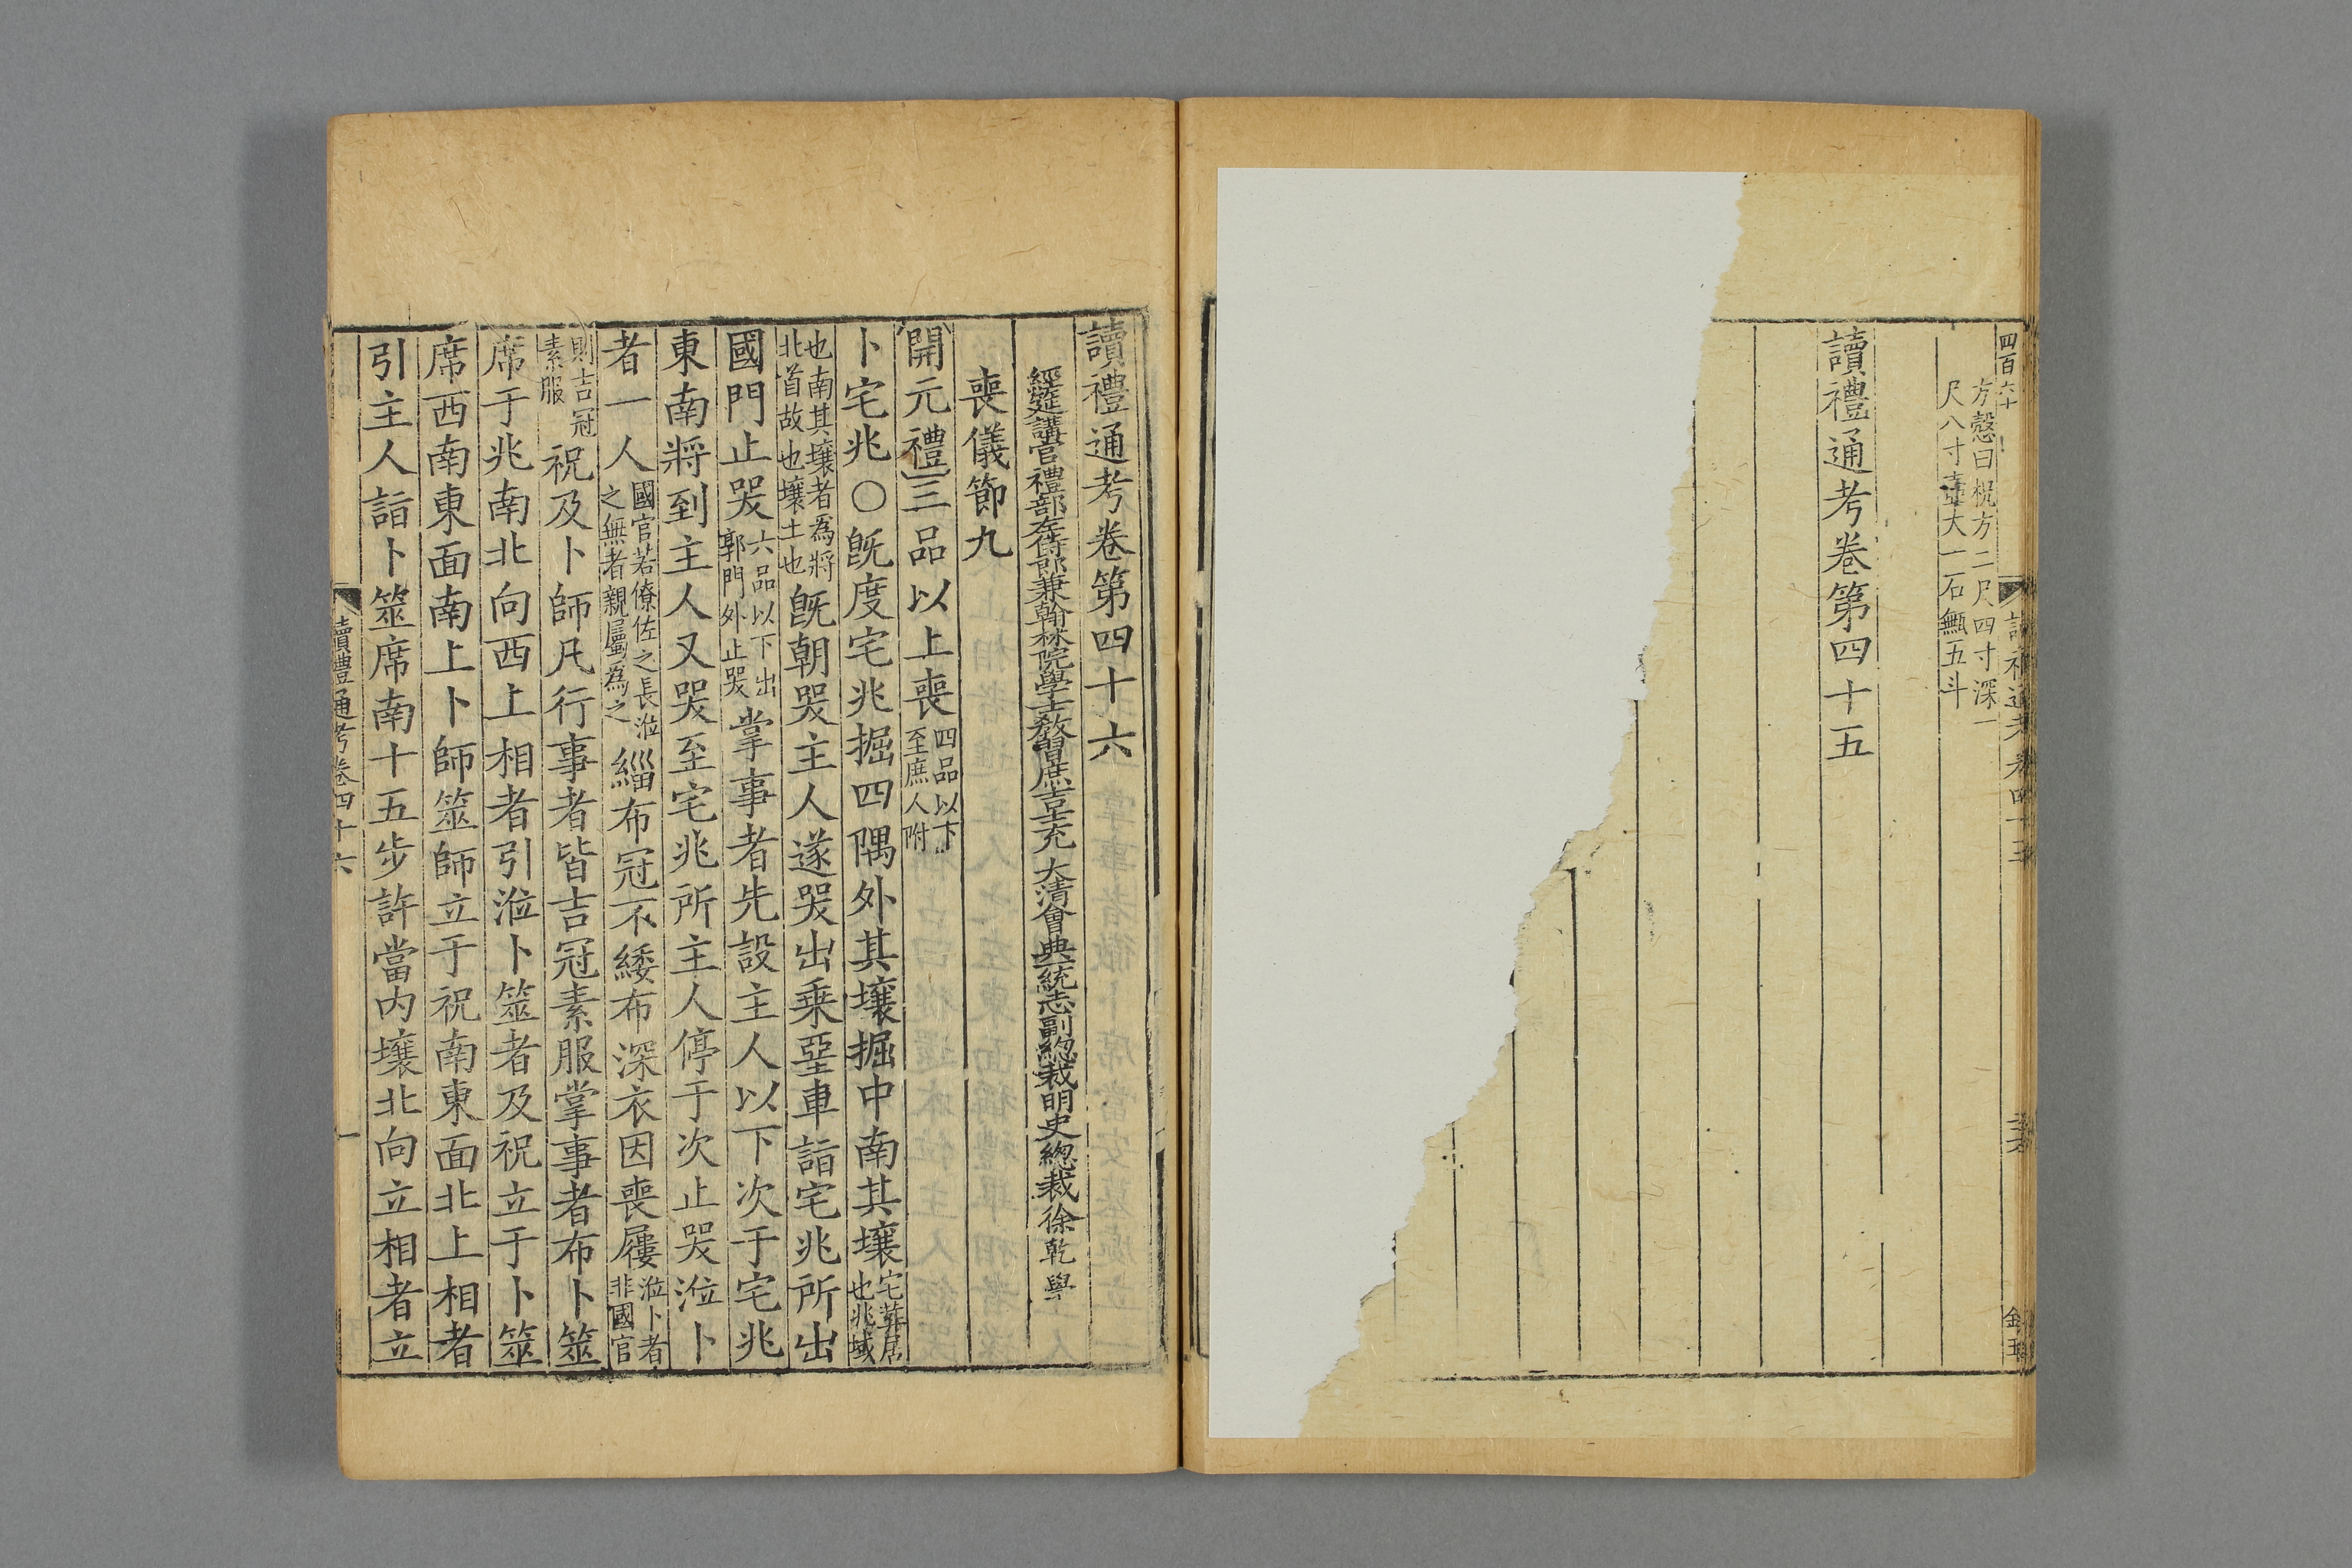 四百六十
方愨曰柷方二尺四寸深一
尺八寸壺大一石甒五斗
讀禮通考卷第四十五
讀禮通考卷第四十六
經筵講官禮部左侍郎兼翰林院學士教習庶吉士充大清會典一統志副總裁明史總裁徐乾學
喪儀節九
開元禮三品以上喪四品以下至庶人附
卜宅兆〇旣度宅兆掘四隅外其壤掘中南其壤宅葬居也兆域
也南其壤者為將北首故也壤土也旣朝哭主人遂哭出乗堊車詣宅兆所出
國門止哭六品以下出郭門外止哭掌事者先設主人以下次于宅兆
東南將到主人又哭至宅兆所主人停于次止哭涖卜
者一人國官若僚佐之長涖之無者親屬為之緇布冠不緌布深衣因喪屨涖卜者非國官
則吉冠素服祝及卜師凡行事者皆吉冠素服掌事者布卜筮
席于兆南北向西上相者引涖卜筮者及祝立于卜筮
席西南東面南上卜師筮師立于祝南東面北上相者
引主人詣卜筮席南十五步許當內壤北向立相者立
讀禮通考卷四十六
一